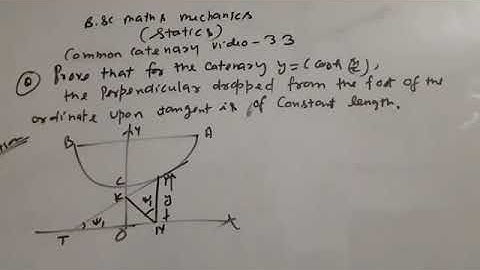 B.sc maths mechanics
(statics)
Common catenary video-33
Prove that for the catenary y=c cosh(x/c),
the perpendicular dropped from the foot of the
ordinate upon tangent is of constant length.
B
y
A
C
P
K
ψ
y
ψ
T
O
N
X